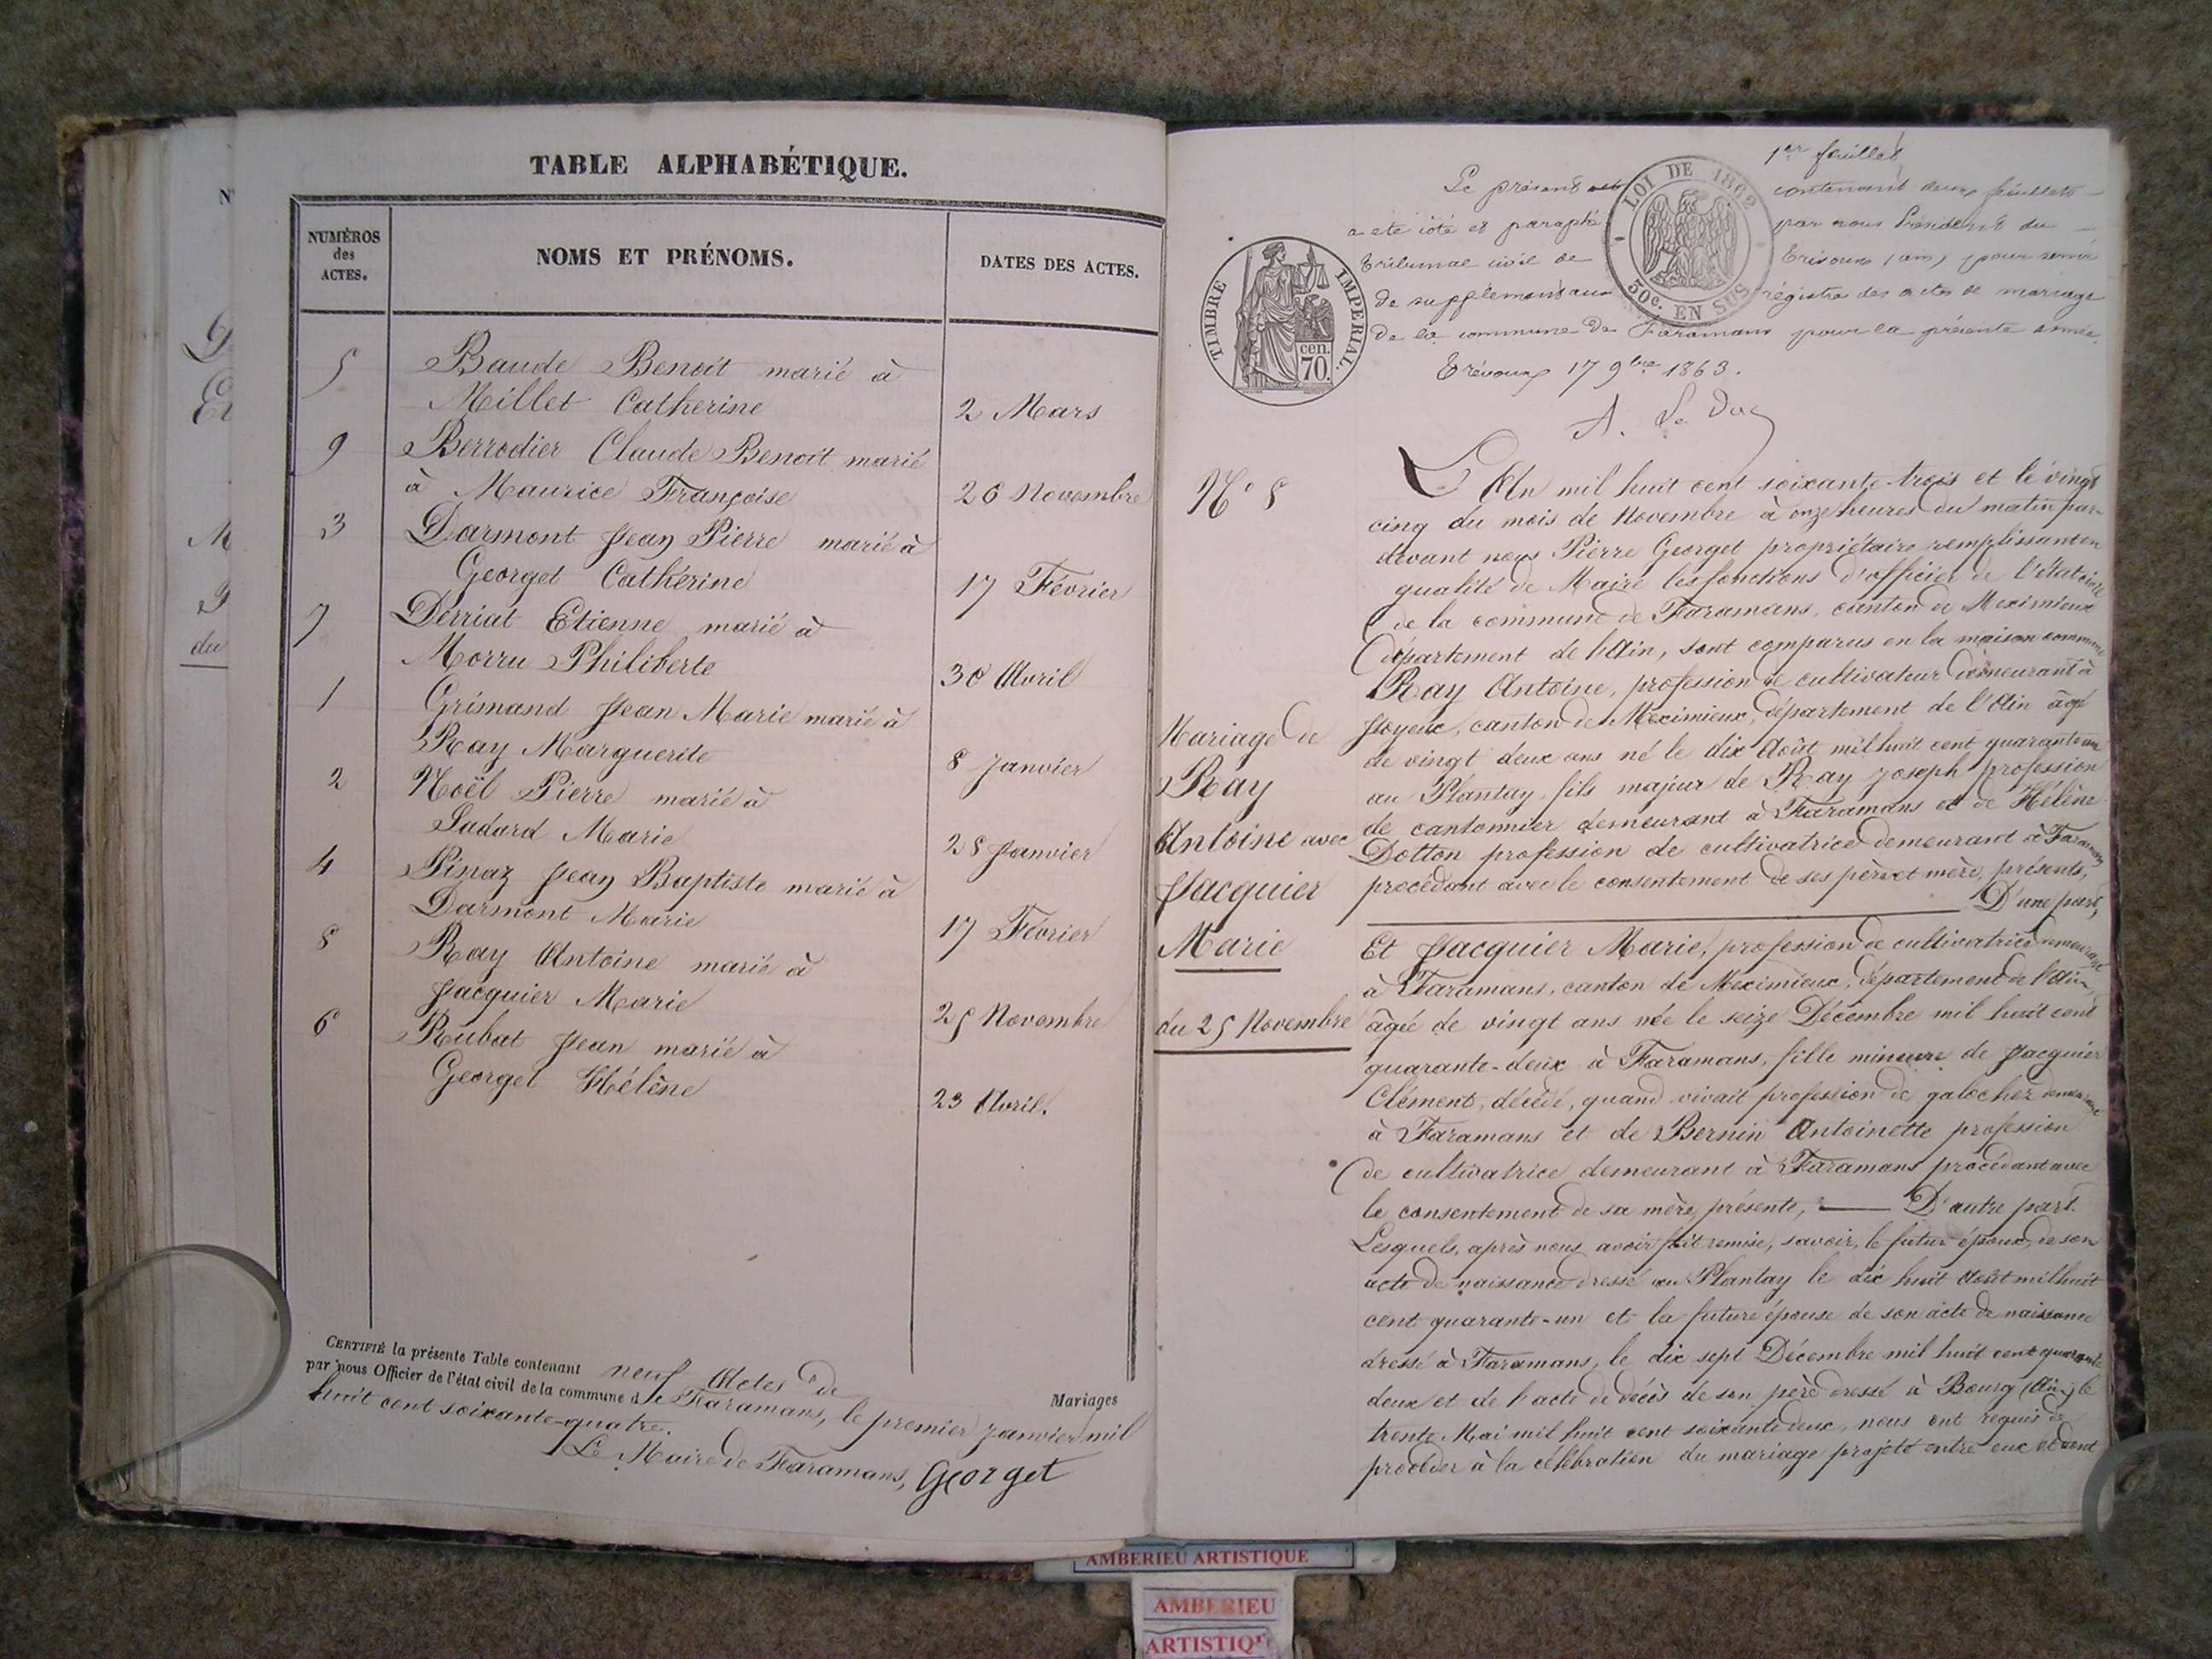 TABLE ALPHABÉTIQUE.
NUMÉROS
des
ACTES.
NOMS ET PRÉNOMS.
DATES DES ACTES.
5 Baude Benoit marié à
Millet Catherine 2 Mars
9 Berrodier Claude Benoit marié
à Maurice Françoise 26 Novembre
3 Darmont Jean Pierre marié à
Georget Catherine 17 Février
7 Derriat Etienne marié à
Morru Philiberte 30 Avril
1 Grimand Jean Marie marié à
Ray Marguerite 8 Janvier
2 Noël Pierre marié à
Ladard Marie 28 Janvier
4 Pinaz Jean Baptiste marié à
Darmont Marie 17 Février
8 Ray Antoine marié à
Jacquier Marie 25 Novembre
6 Rubat Jean marié à
Georget Hélène 23 Avril.
CERTIFIÉ la présente Table contenant neuf Actes de Mariages
par nous Officier de l'état civil de la commune de Faramans, le premier Janvier mil
huit cent soixante-quatre.
Le Maire de Faramans, Georget
1er feuillet
Le présent contenant deux feuillets
a été coté et paraphé par nous Président du
Tribunal civil de Trévoux (ain) pour servir
de supplément aux régistres des actes de mariage
de la commune de Faramans pour la présente année.
Trévoux 17 9bre 1863.
A. Le Duc
TIMBRE IMPERIAL.
cen.
70.
LOI DE 1862
50c. EN SUS
N° 8
Mariage de
Ray
Antoine avec
Jacquier
Marie
du 25 Novembre
L'An mil huit cent soixante-trois et le vingt
cinq du mois de Novembre à onze heures du matin par-
devant nous Pierre Georget propriétaire remplissant en
qualité de Maire les fonctions d'officier de l'état civil
de la commune de Faramans, canton de Meximieux
département de l'Ain, sont comparus en la maison commune
Ray Antoine, profession de cultivateur demeurant à
Joyeux, canton de Meximieux, département de l'Ain âgé
de vingt deux ans né le dix Août mil huit cent quarante un
au Plantay fils majeur de Ray Joseph profession
de cantonnier demeurant à Faramans et de Hélène
Dotton profession de cultivatrice demeurant à Faramans
procédant avec le consentement de ses père et mère, présents,
D'une part,
Et Jacquier Marie, profession de cultivatrice demeurant
à Faramans, canton de Meximieux, département de l'Ain,
âgée de vingt ans née le seize Décembre mil huit cent
quarante-deux à Faramans, fille mineure de Jacquier
Clément, décédé, quand vivait profession de galocher demeurant
à Faramans et de Bernin Antoinette profession
de cultivatrice demeurant à Faramans procédant avec
le consentement de sa mère, présente, D'autre part.
Lesquels, après nous avoir fait remise, savoir, le futur époux, de son
acte de naissance dressé au Plantay le dix huit Août mil huit
cent quarante-un et la future épouse de son acte de naissance
dressé à Faramans, le dix sept Décembre mil huit cent quarante
deux et de l'acte de décès de son père dressé à Bourg (Ain) le
trente Mai mil huit cent soixante deux, nous ont requis de
procéder à la célébration du mariage projeté entre eux et dont
AMBERIEU ARTISTIQUE
AMBERIEU
ARTISTIQU